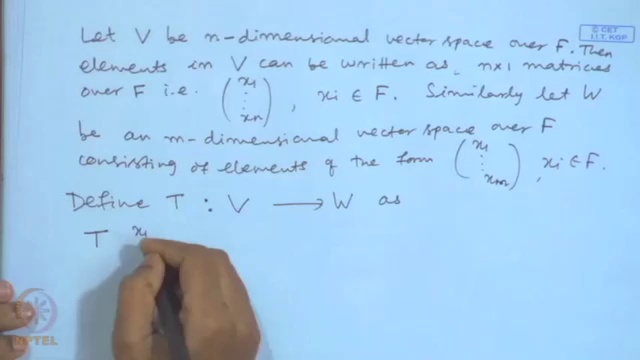 © CET
I.I.T. KGP
Let V be n-dimensional vector space over F. Then
elements in V can be written as, n×1 matrices
over F i.e. (x1 ⋮ xn), xi ∈ F. Similarly let W
be an m-dimensional vector space over F
consisting of elements of the form (x1 ⋮ xm), xi ∈ F.
Define T : V ⟶ W as
T x1
NPTEL